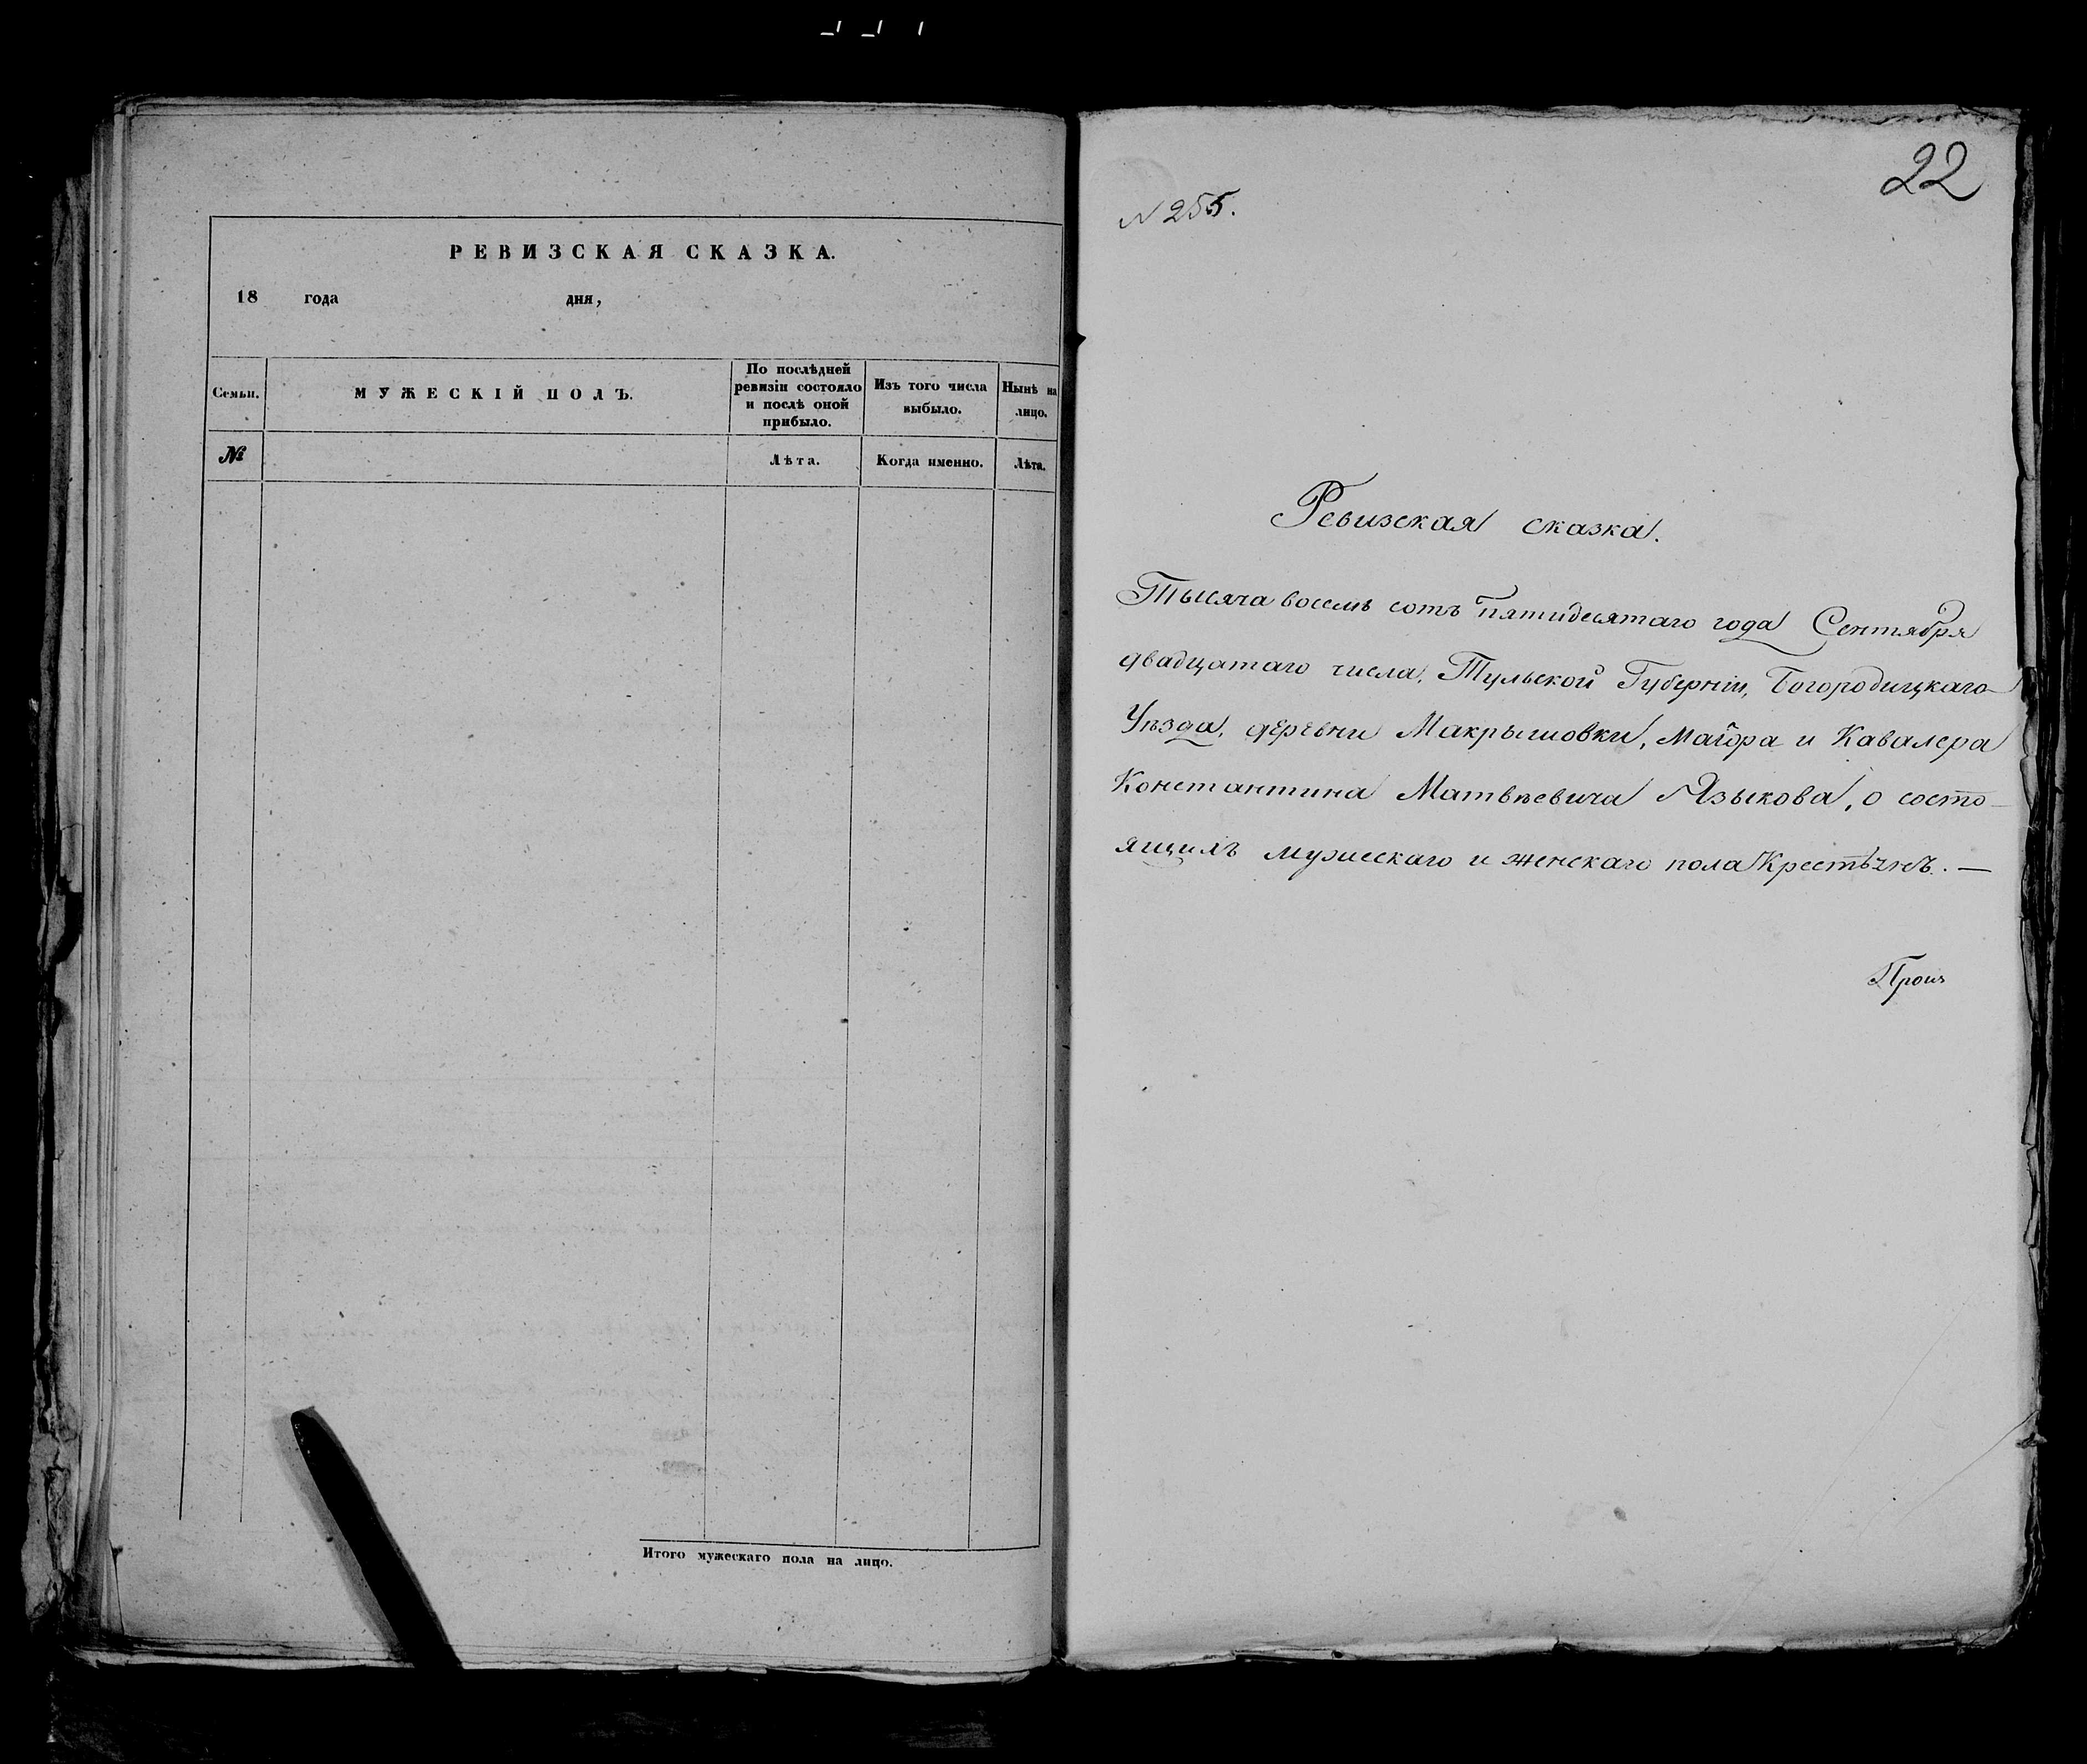 РЕВИЗСКАЯ СКАЗКА.
18 года дня,
Семьи.
МУЖЕСКІЙ ПОЛЪ.
По послѣдней
ревизіи состояло
и послѣ оной
прибыло.
Изъ того числа
выбыло.
Нынѣ на
лицо.
№
Лѣта.
Когда именно.
Лѣта.
Итого мужескаго пола на лицо.
22
N 255.
Ревизская сказка.
Тысяча восемь сотъ пятидесятаго года Сентября
двадцатаго числа, Тульской Губерніи, Богородицкаго
Уѣзда, деревни Макрышовки, Маіора и Кавалера
Константина Матвѣевича Языкова, о состо-
ящихъ мужескаго и женскаго пола Крестьянъ. —